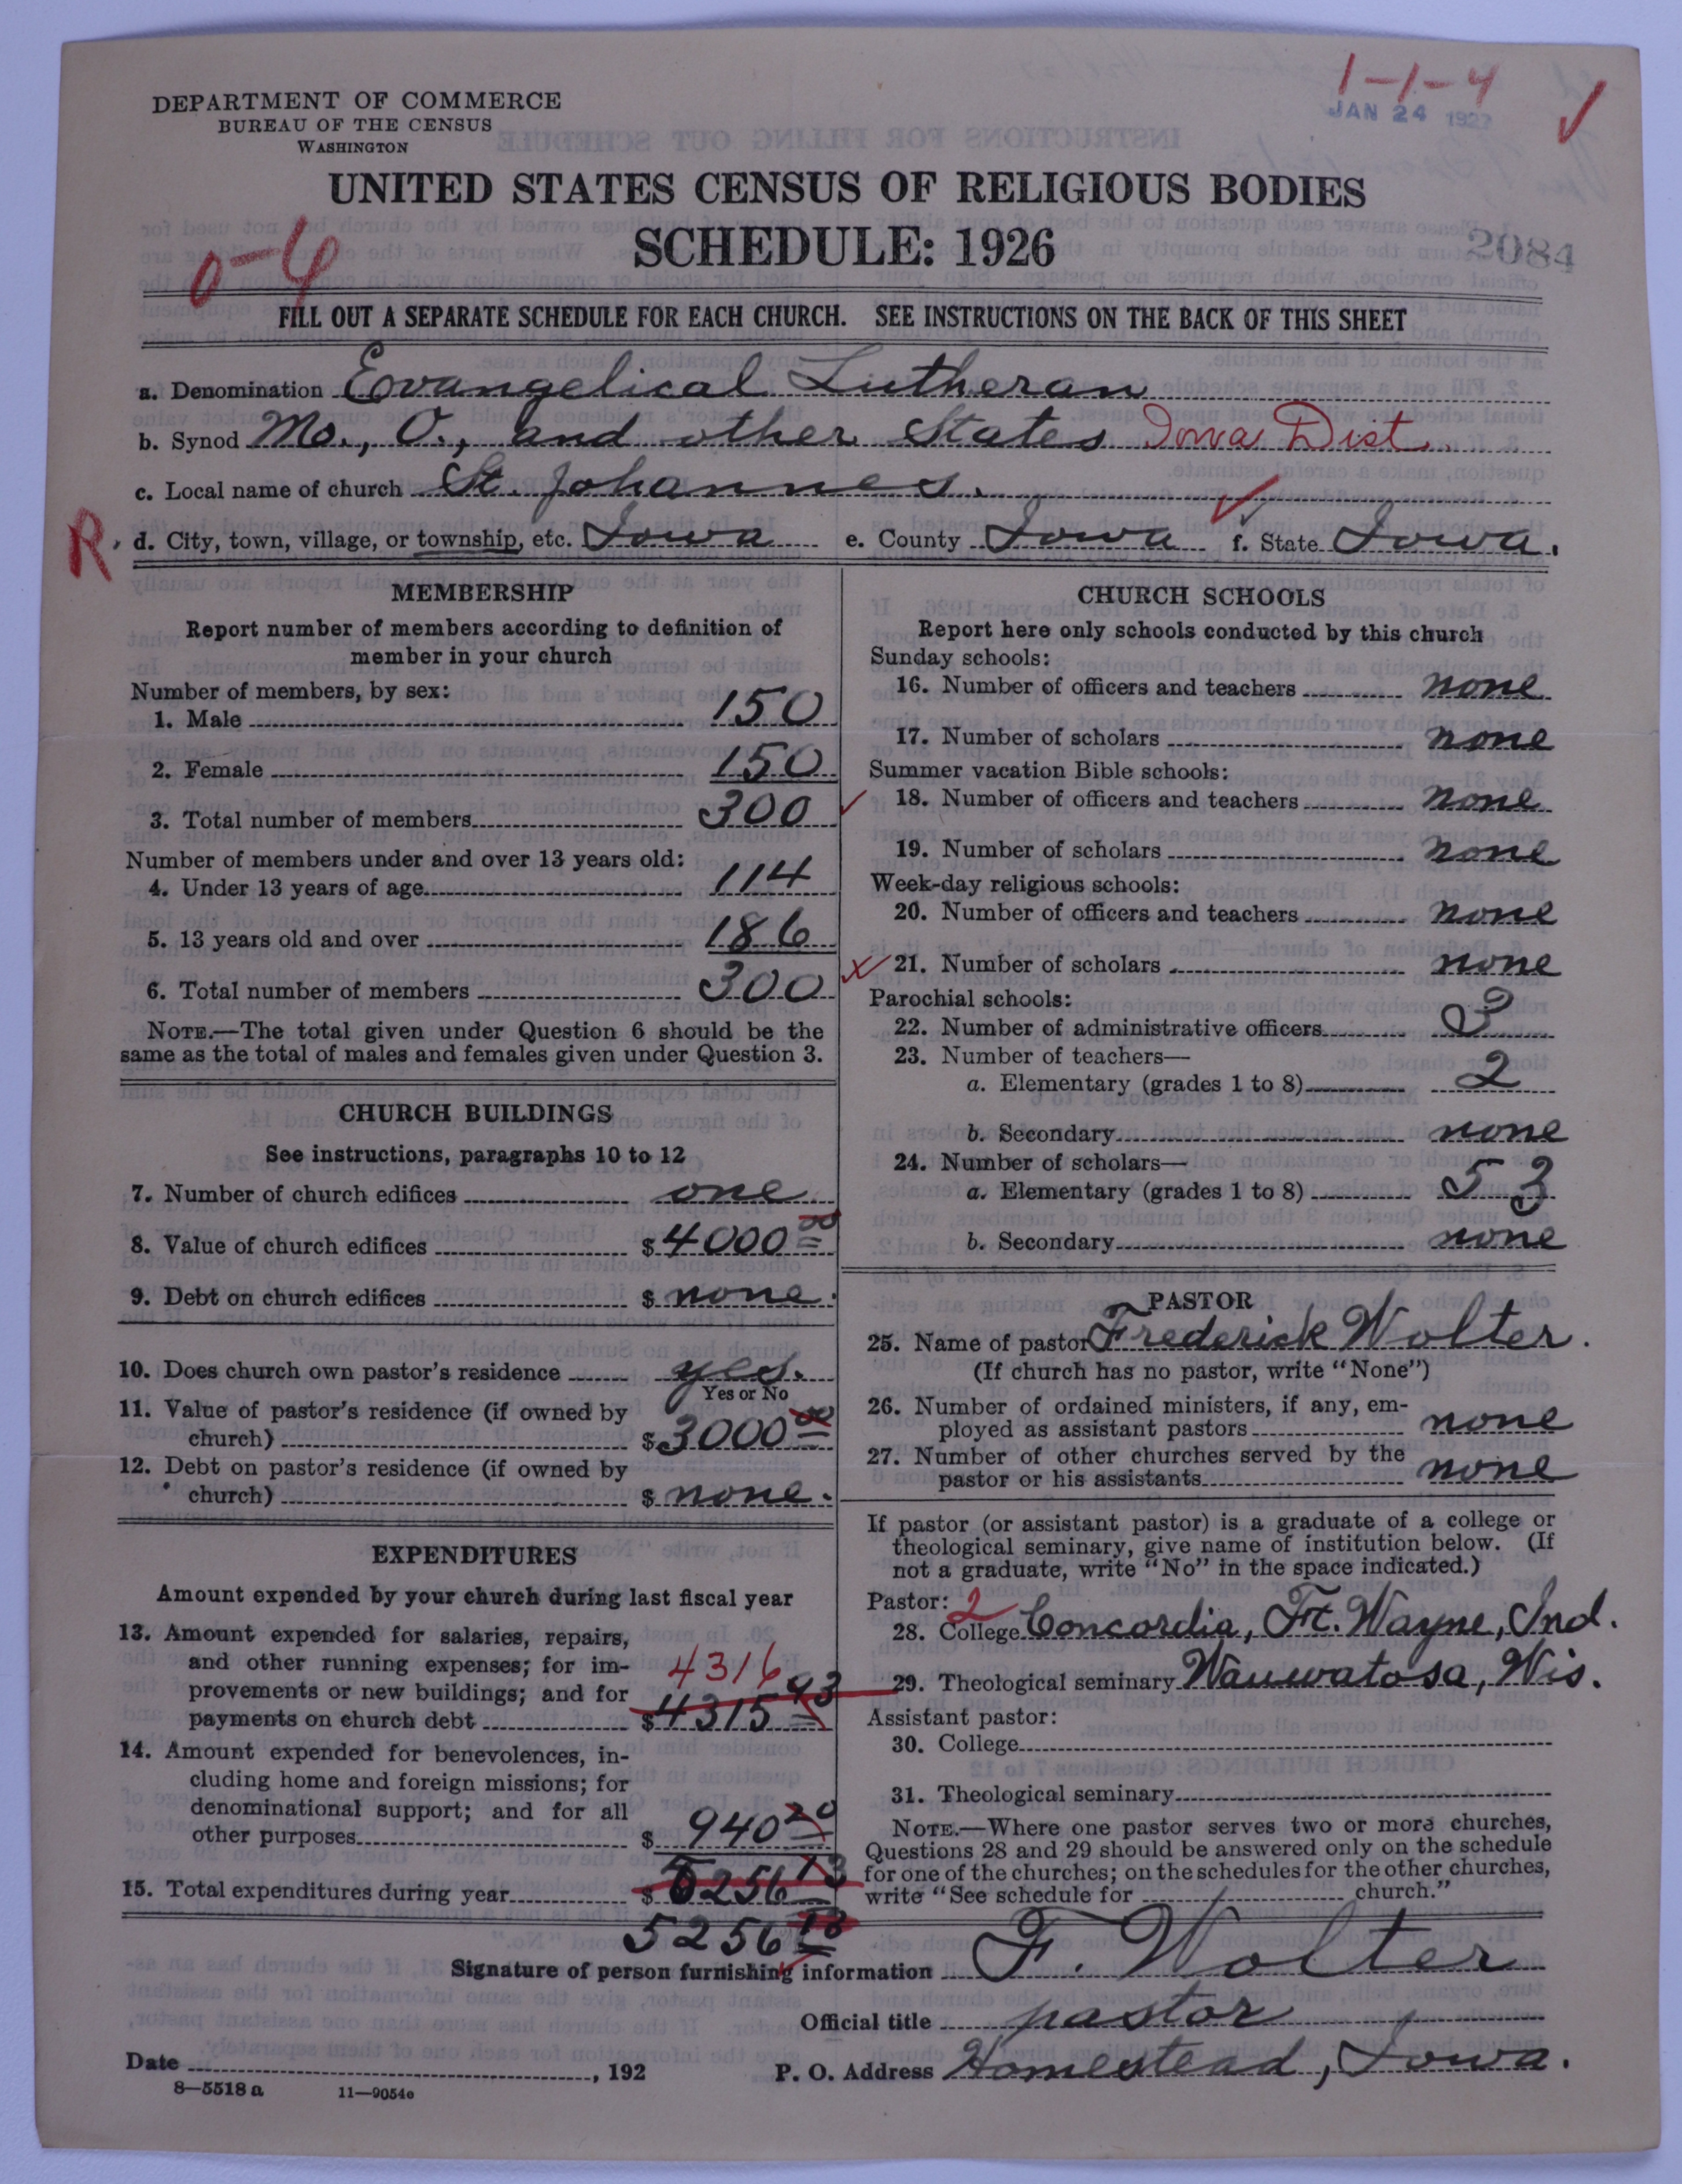 1-1-4
JAN 24 1927
DEPARTMENT OF COMMERCE
BUREAU OF THE CENSUS
WASHINGTON
UNITED STATES CENSUS OF RELIGIOUS BODIES
SCHEDULE: 1926
2084
0-4
FILL OUT A SEPARATE SCHEDULE FOR EACH CHURCH. SEE INSTRUCTIONS ON THE BACK OF THIS SHEET
a. Denomination Evangelical Lutheran
b. Synod Mo., O., and other States Iowa Dist.
c. Local name of church St. Johannes.
R. d. City, town, village, or township, etc. Iowa e. County Iowa f. State Iowa.
MEMBERSHIP
Report number of members according to definition of
member in your church
Number of members, by sex:
1. Male 150
2. Female 150
3. Total number of members 300
Number of members under and over 13 years old:
4. Under 13 years of age 114
5. 13 years old and over 186
6. Total number of members 300
NOTE.—The total given under Question 6 should be the
same as the total of males and females given under Question 3.
CHURCH BUILDINGS
See instructions, paragraphs 10 to 12
7. Number of church edifices one
8. Value of church edifices $ 4000 00
9. Debt on church edifices $ none.
10. Does church own pastor's residence yes.
Yes or No
11. Value of pastor's residence (if owned by
church) $ 3000 00
12. Debt on pastor's residence (if owned by
church) $ none.
EXPENDITURES
Amount expended by your church during last fiscal year
13. Amount expended for salaries, repairs,
and other running expenses; for im-
4316
provements or new buildings; and for
payments on church debt $ 4315 93
14. Amount expended for benevolences, in-
cluding home and foreign missions; for
denominational support; and for all
other purposes $ 940 20
15. Total expenditures during year $ 5256 13
5256 13
CHURCH SCHOOLS
Report here only schools conducted by this church
Sunday schools:
16. Number of officers and teachers none
17. Number of scholars none
Summer vacation Bible schools:
18. Number of officers and teachers none
19. Number of scholars none
Week-day religious schools:
20. Number of officers and teachers none
21. Number of scholars none
Parochial schools:
22. Number of administrative officers
23. Number of teachers—
a. Elementary (grades 1 to 8) 2
b. Secondary none
24. Number of scholars—
a. Elementary (grades 1 to 8) 53
b. Secondary none
PASTOR
25. Name of pastor Frederick Wolter.
(If church has no pastor, write "None")
26. Number of ordained ministers, if any, em-
ployed as assistant pastors none
27. Number of other churches served by the
pastor or his assistants none
If pastor (or assistant pastor) is a graduate of a college or
theological seminary, give name of institution below. (If
not a graduate, write "No" in the space indicated.)
Pastor: 2
28. College Concordia, Ft. Wayne, Ind.
29. Theological seminary Wauwatosa, Wis.
Assistant pastor:
30. College
31. Theological seminary
NOTE.—Where one pastor serves two or more churches,
Questions 28 and 29 should be answered only on the schedule
for one of the churches; on the schedules for the other churches,
write "See schedule for church."
Signature of person furnishing information F. Wolter
Official title pastor
Date , 192 P. O. Address Homestead, Iowa.
8—5518a 11—9054e